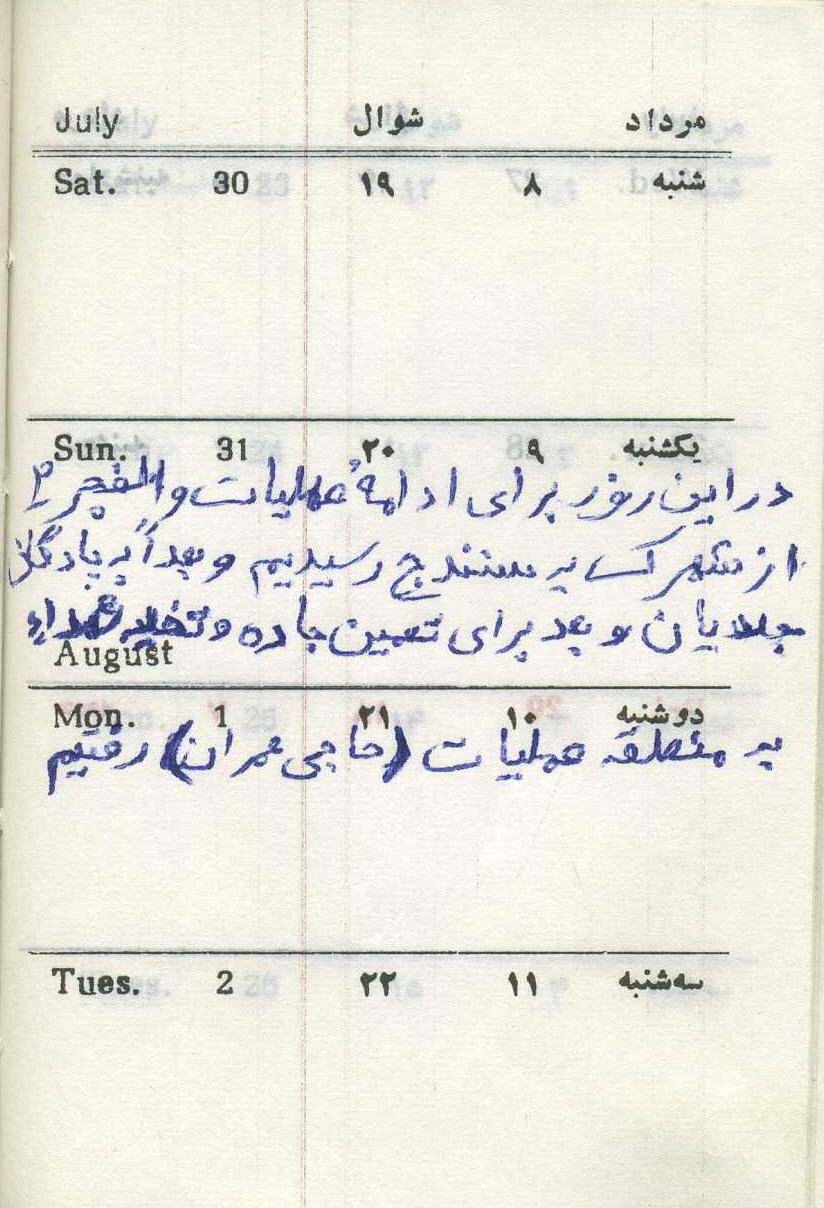 July شوال مرداد
Sat. 30 ۱۹ ۸ شنبه
Sun. 31 ۲۰ ۹ یکشنبه
در این روز برای ادامهٔ عملیات والفجر ۲
از شهرک به سنندج رسیدیم و بعداً به پادگان
جلدیان و بعد برای تعمین جاده و
August
Mon. 1 ۲۱ ۱۰ دوشنبه
به منطقه عملیات (حاجی عمران) رفتیم
Tues. 2 ۲۲ ۱۱ سه شنبه